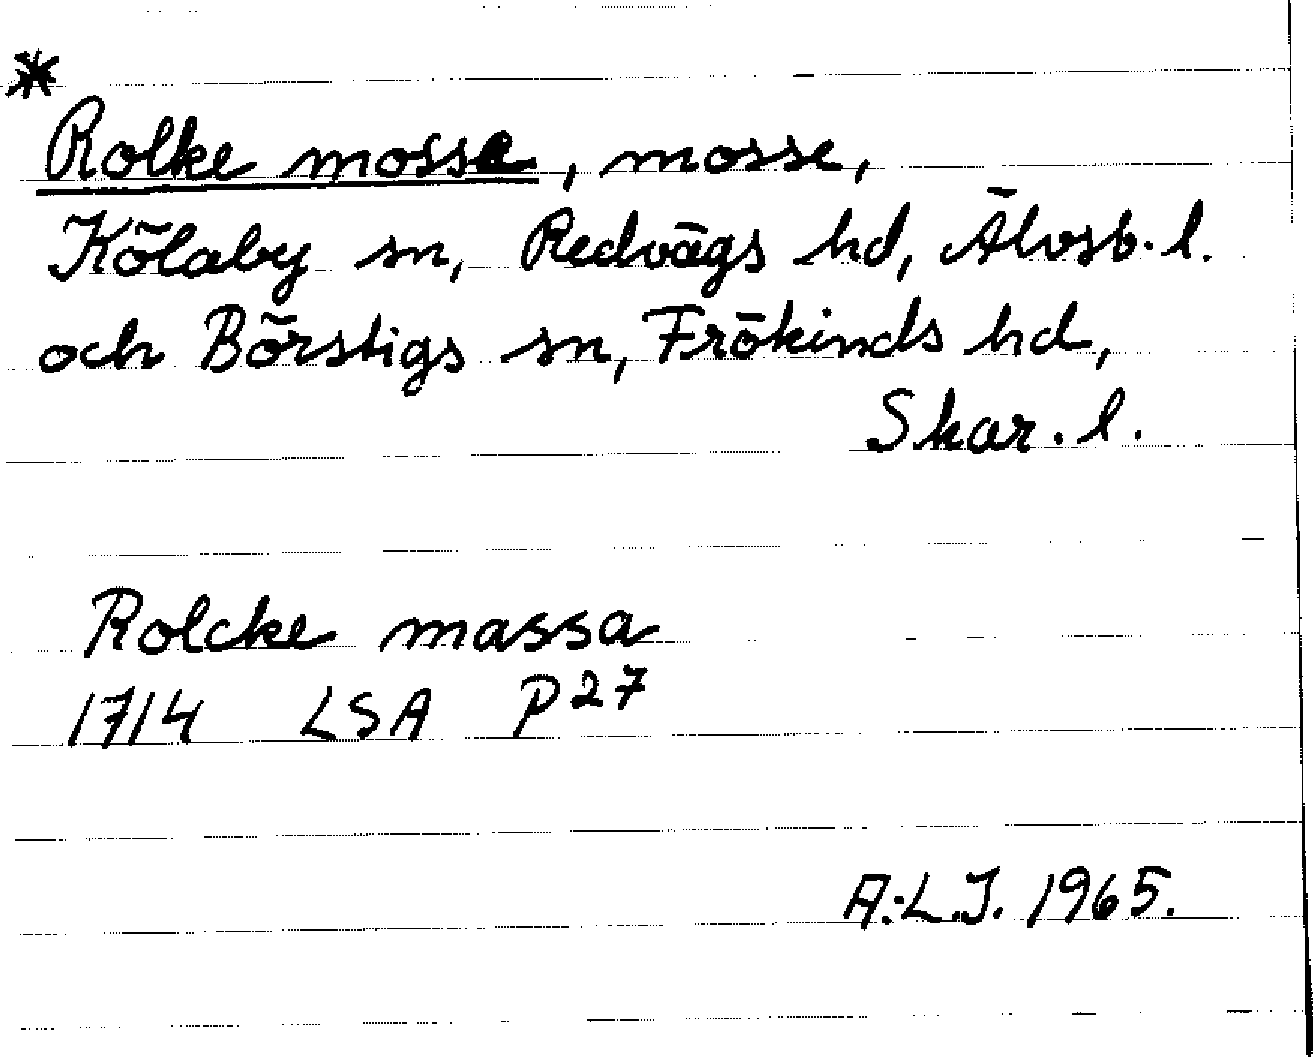 *
Rolke mosse, mosse,
Kölaby sn, Redvägs hd, Älvsb. l.
och Börstigs sn, Frökinds hd,
Skar. l.
Rolcke massa
1714 LSA P27
A.-L.J. 1965.